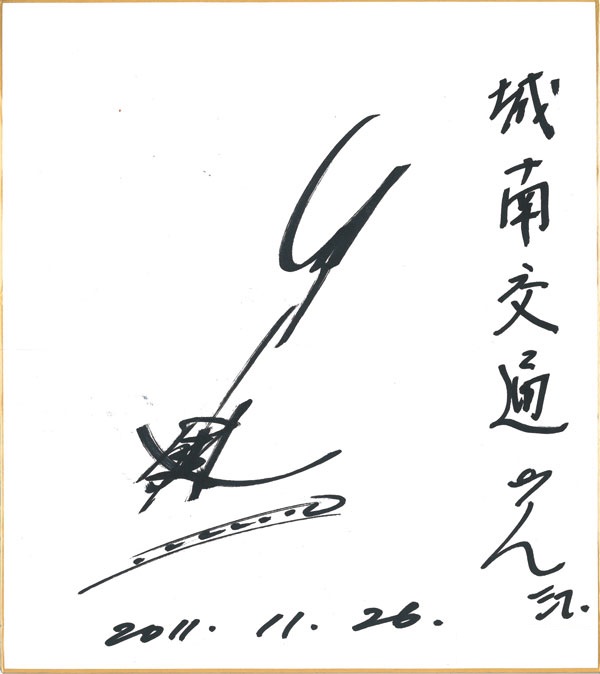 城南交通さん江
2011.11.26.